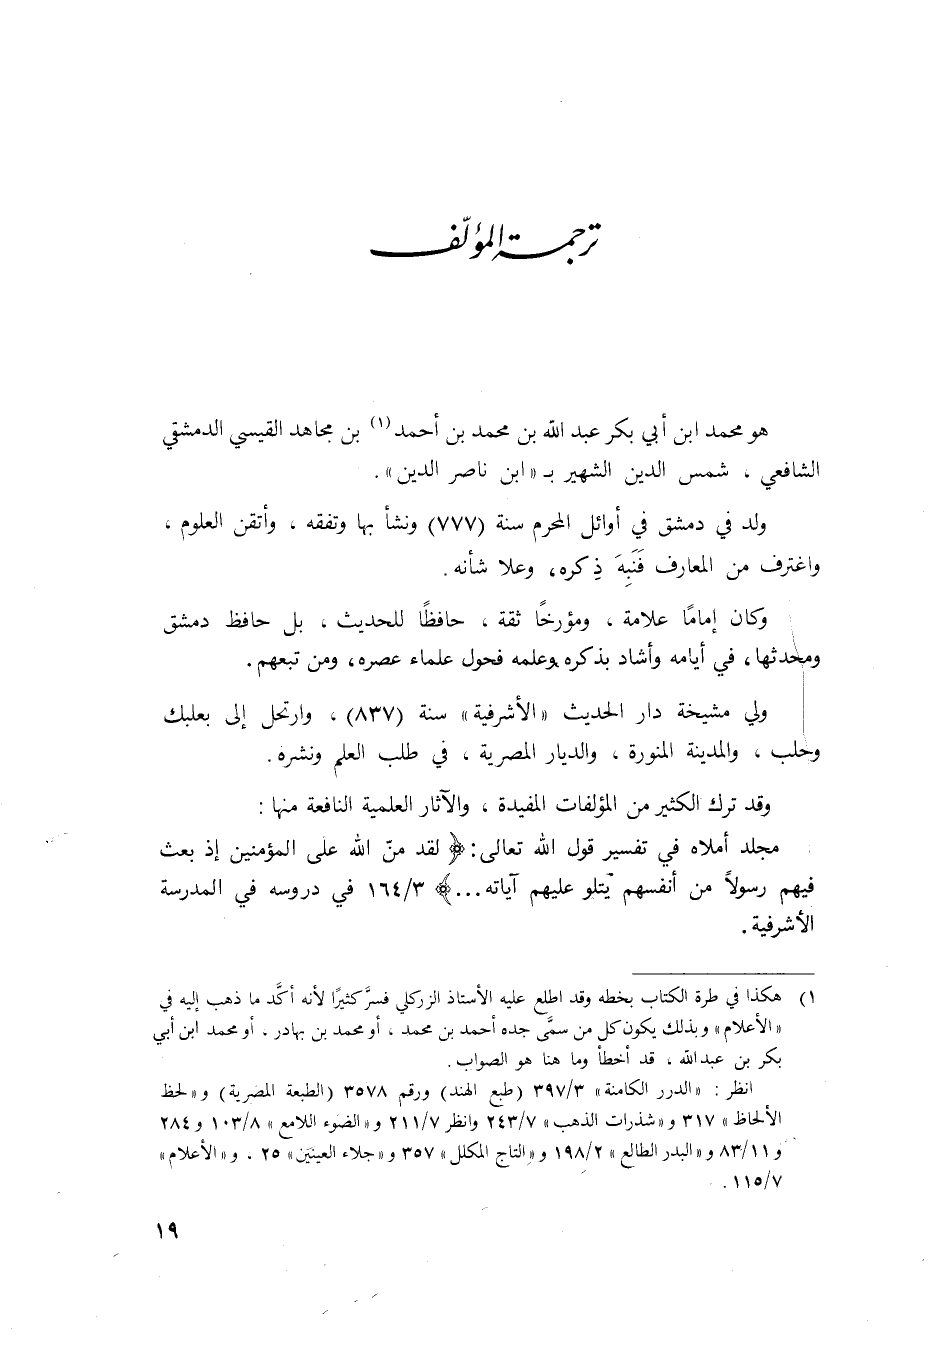 ترجمة المؤلّف
هو محمد ابن أبي بكر عبد الله بن محمد بن أحمد(١) بن مجاهد القيسي الدمشقي
الشافعي ، شمس الدين الشهير بـ «ابن ناصر الدين» .
ولد في دمشق في أوائل المحرم سنة (٧٧٧) ونشأ بها وتفقه ، وأتقن العلوم ،
واغترف من المعارف فَنَبِهَ ذِكره، وعلا شأنه .
وكان إمامًا علامة ، ومؤرخًا ثقة ، حافظًا للحديث ، بل حافظ دمشق
ومحدثها، في أيامه وأشاد بذكره وعلمه فحول علماء عصره، ومن تبعهم.
ولي مشيخة دار الحديث «الأشرفية» سنة (٨٣٧) ، وارتحل إلى بعلبك
وحلب ، والمدينة المنورة ، والديار المصرية ، في طلب العلم ونشره .
وقد ترك الكثير من المؤلفات المفيدة ، والآثار العلمية النافعة منها :
مجلد أملاه في تفسير قول الله تعالى: ﴿ لقد منّ الله على المؤمنين إذ بعث
فيهم رسولاً من أنفسهم يتلو عليهم آياته...﴾ ١٦٤/٣ في دروسه في المدرسة
الأشرفية .
١) هكذا في طرة الكتاب بخطه وقد اطلع عليه الأستاذ الزركلي فسرَّ كثيرًا لأنه أكَّد ما ذهب إليه في
«الأعلام» وبذلك يكون كل من سمَّى جده أحمد بن محمد ، أو محمد بن بهادر . أو محمد ابن أبي
بكر بن عبدالله ، قد أخطأ وما هنا هو الصواب .
انظر : «الدرر الكامنة» ٣٩٧/٣ (طبع الهند) ورقم ٣٥٧٨ (الطبعة المصرية) و «لحظ
الألحاظ» ٣١٧ و «شذرات الذهب» ٢٤٣/٧ وانظر ٢١١/٧ و «الضوء اللامع» ١٠٣/٨ و ٢٨٤
و ٨٣/١١ و «البدر الطالع» ١٩٨/٢ و «التاج المكلل» ٣٥٧ و «جلاء العينين» ٢٥ . و «الأعلام»
١١٥/٧ .
١٩